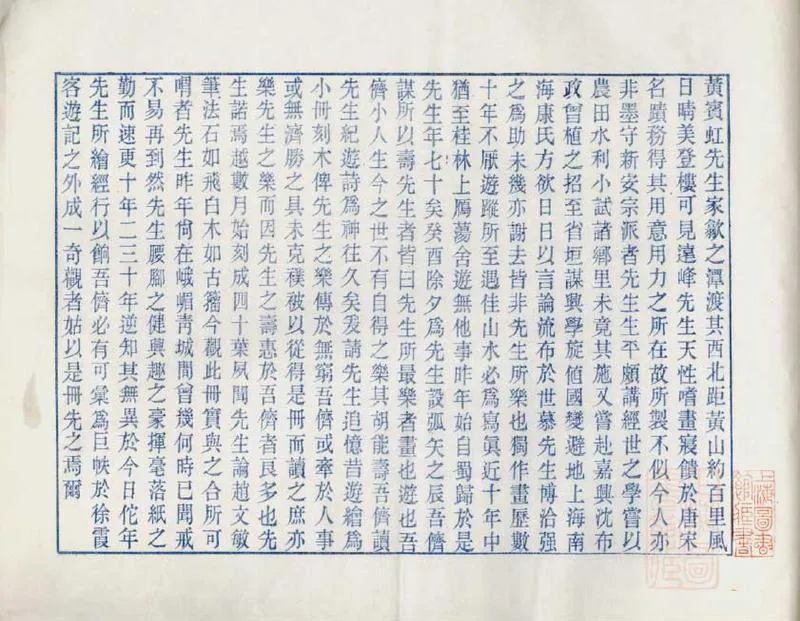 黃賓虹先生家歙之潭渡其西北距黃山約百里風
日晴美登樓可見遠峰先生天性嗜畫寢饋於唐宋
名蹟務得其用意用力之所在故所製不似今人亦
非墨守新安宗派者先生生平頗講經世之學嘗以
農田水利小試諸鄉里未竟其施又嘗赴嘉興沈布
政曾植之招至省垣謀興學旋値國變避地上海南
海康氏方欲日日以言論流布於世慕先生博洽强
之爲助未幾亦謝去皆非先生所樂也獨作畫歷數
十年不厭遊蹤所至遇佳山水必爲寫眞近十年中
猶至桂林上鴈蕩舍遊無他事昨年始自蜀歸於是
先生年七十矣癸酉除夕爲先生設弧矢之辰吾儕
謀所以壽先生者皆曰先生所最樂者畫也遊也吾
儕小人生今之世不有自得之樂其胡能壽吾儕讀
先生紀遊詩爲神往久矣爰請先生追憶昔遊繪爲
小冊刻木俾先生之樂傳於無窮吾儕或牽於人事
或無濟勝之具未克襆被以從得是冊而讀之庶亦
樂先生之樂而因先生之壽惠於吾儕者良多也先
生諾焉越數月始刻成四十葉夙聞先生論趙文敏
筆法石如飛白木如古籀今觀此冊實與之合所可
喟者先生昨年倘在峨嵋靑城間曾幾何時已聞戒
不易再到然先生腰腳之健興趣之豪揮毫落紙之
勤而速更十年二三十年逆知其無異於今日佗年
先生所繪經行以餉吾儕必有可彙爲巨帙於徐霞
客遊記之外成一奇觀者姑以是冊先之焉爾
上海圖書館藏書